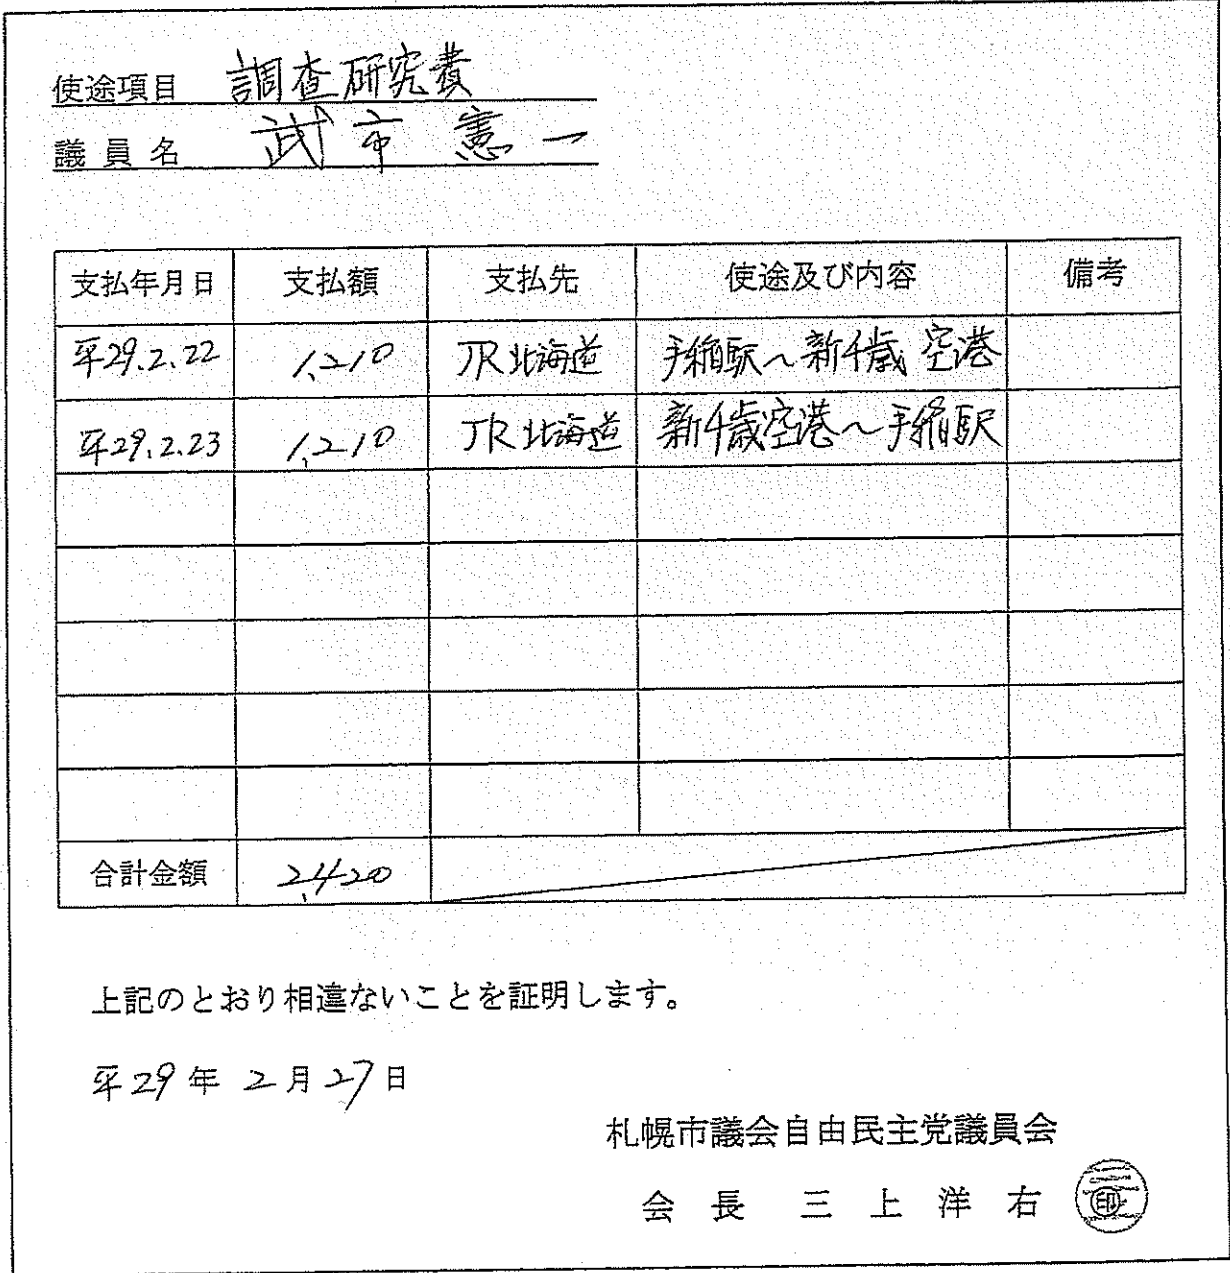 使途項目 調査研究費
議員名 武市憲一
支払年月日 支払額 支払先 使途及び内容 備考
平29.2.22 1,210 JR北海道 手稲駅～新千歳空港
平29.2.23 1,210 JR北海道 新千歳空港～手稲駅
合計金額 2,420
上記のとおり相違ないことを証明します。
平29年 2月27日
札幌市議会自由民主党議員会
会長 三上洋右 印